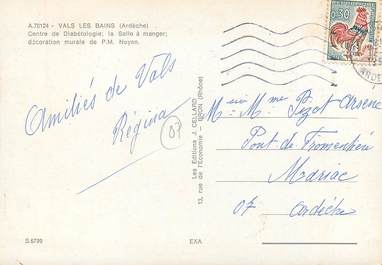 A.70124 - VALS LES BAINS (Ardèche)
Centre de Diabétologie; la Salle à manger;
décoration murale de P.M. Noyen.
0,30
Amitiés de Vals
Régina
07
Les Editions J. CELLARD
13, rue de l'Economie - BRON (Rhône)
M. Mme Pizot Arsène
Pont de Fromentières
Mariac
07 Ardèche
S 6799
EXA